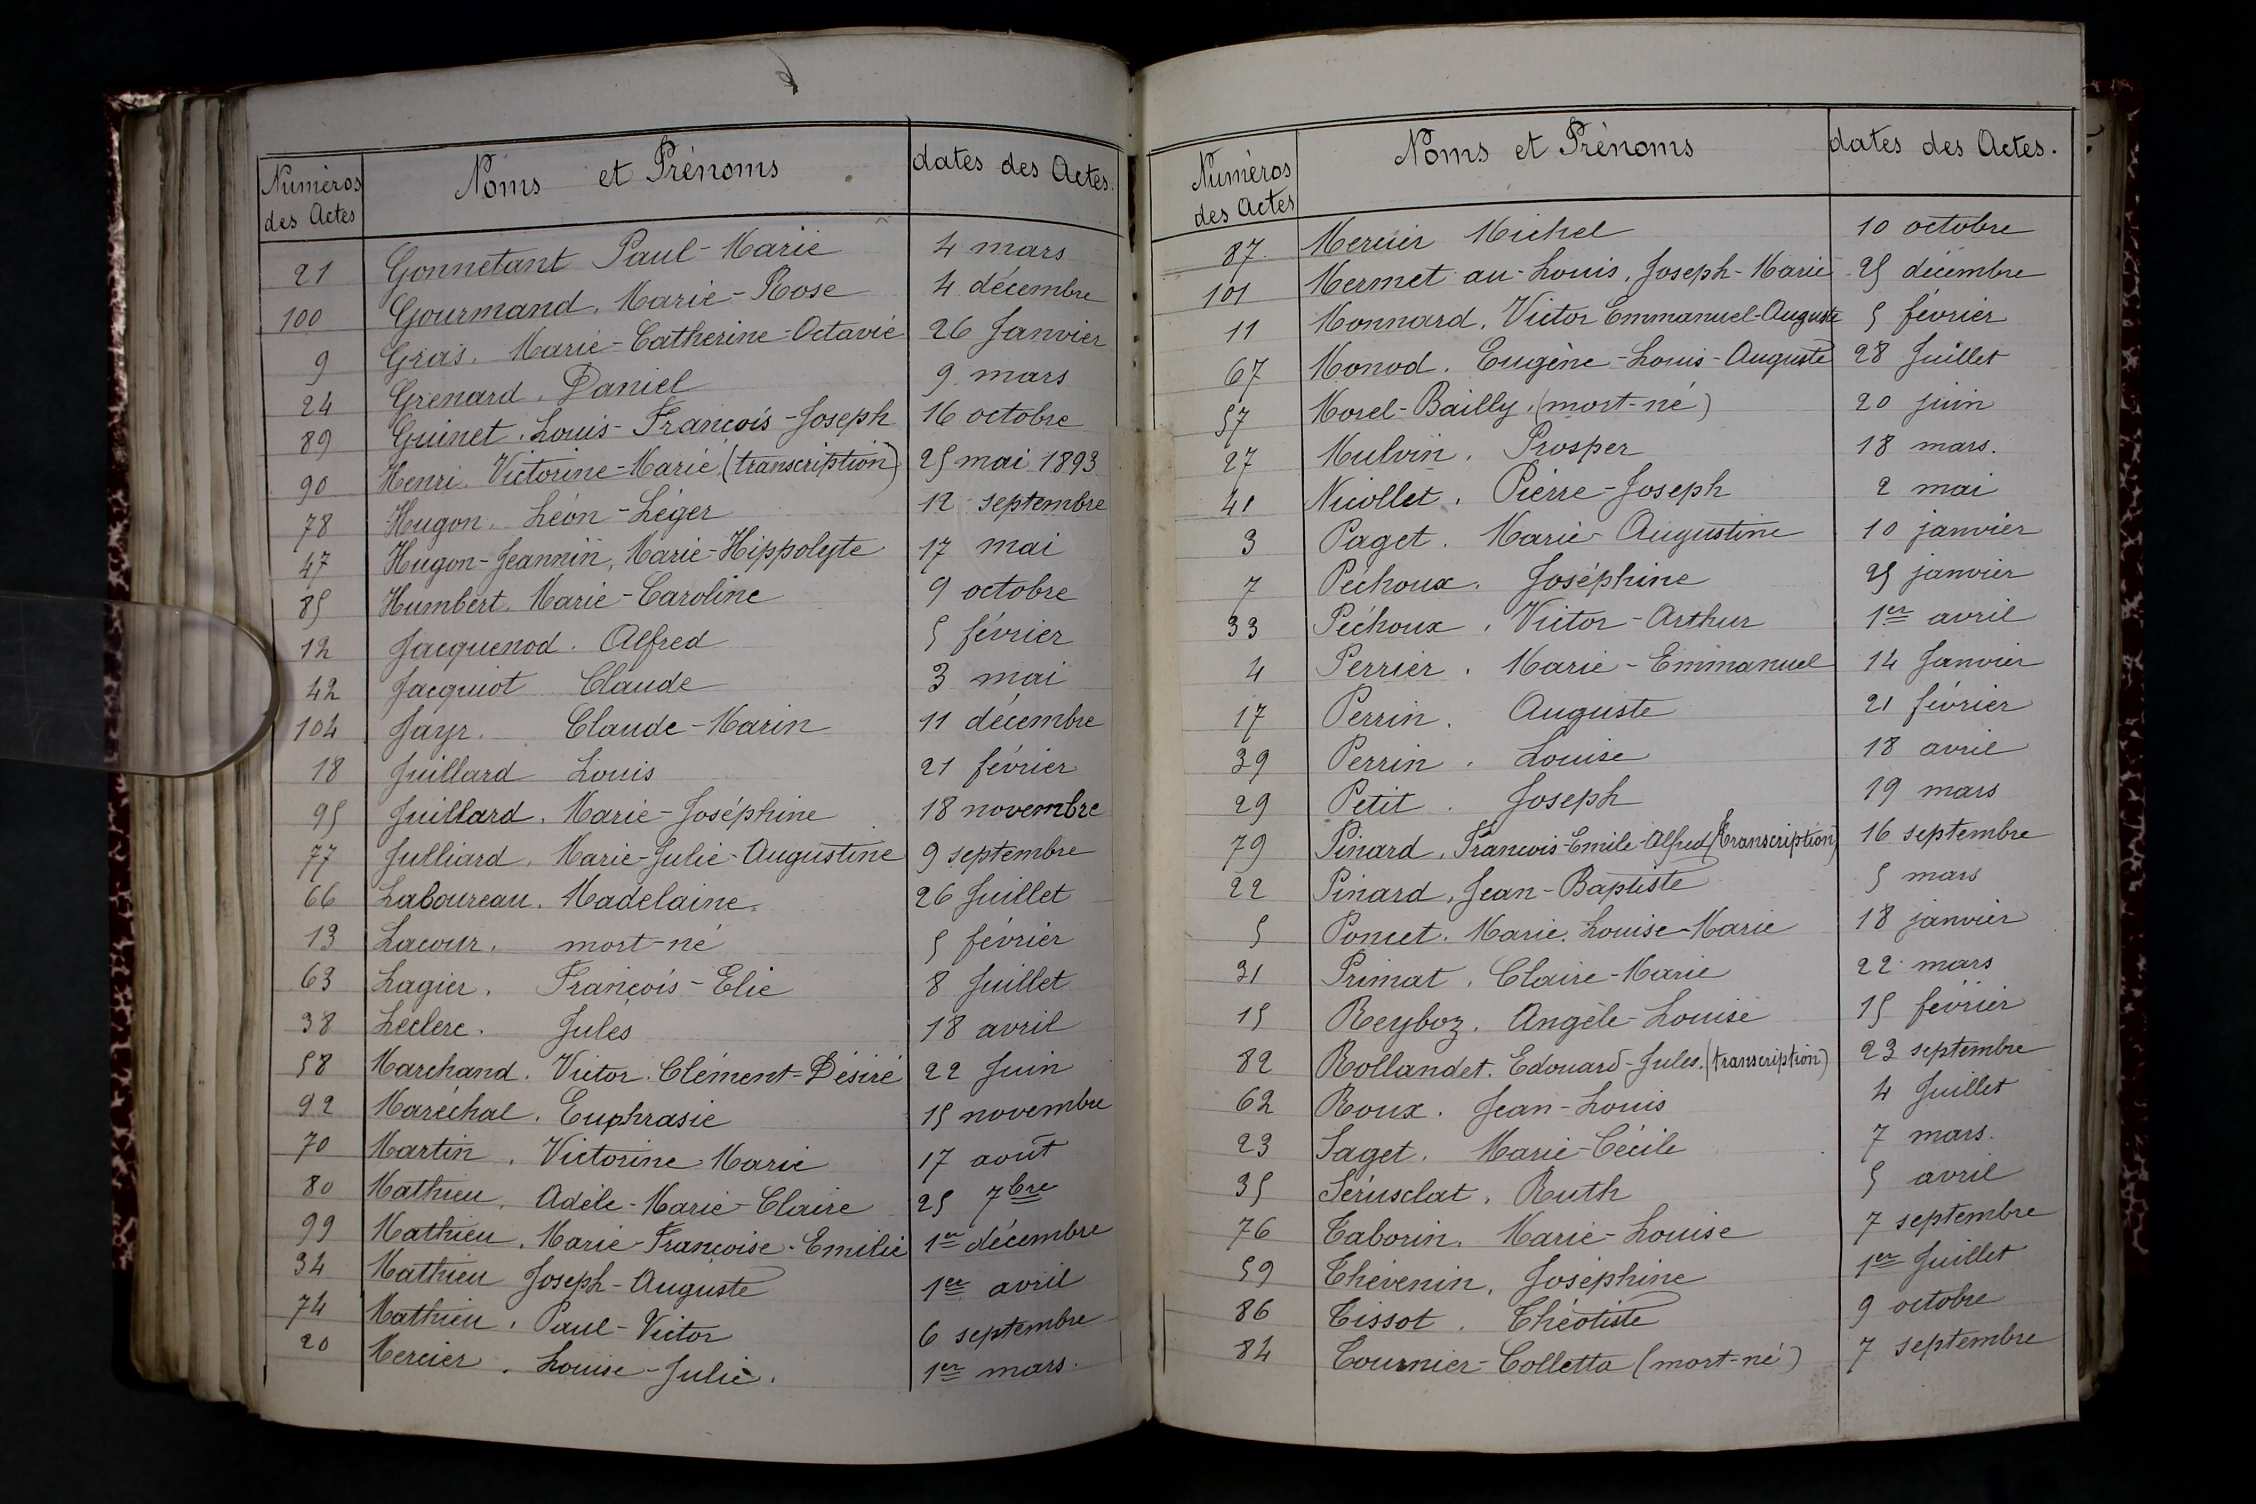 Numéros des Actes Noms et Prénoms dates des Actes.
21 Gonnetant Paul-Marie 4 mars
100 Gourmand, Marie-Rose 4 décembre
9 Gras. Marie-Catherine-Octavie 26 Janvier
24 Grenard, Daniel 9 mars
89 Guinet. Louis-François-Joseph 16 octobre
90 Henri. Victorine-Marie (transcription) 25 mai 1893
78 Hugon. Léon-Léger 12 septembre
47 Hugon-Jeannin, Marie-Hippolyte 17 mai
85 Humbert. Marie-Caroline 9 octobre
12 Jacquenod. Alfred 5 février
42 Jacquiot Claude 3 mai
104 Jayr. Claude-Marin 11 décembre
18 Juillard Louis 21 février
95 Juillard. Marie-Joséphine 18 novembre
77 Julliard, Marie-Julie-Augustine 9 septembre
66 Laboureau. Madelaine. 26 Juillet
13 Lacour. mort-né 5 février
63 Lagier. François-Elie 8 Juillet
38 Leclerc. Jules 18 avril
58 Marchand. Victor. Clément-Désiré 22 Juin
92 Maréchal. Euphrasie 15 novembre
70 Martin. Victorine-Marie 17 août
80 Mathieu. Adèle-Marie-Claire 25 7bre
99 Mathieu. Marie-Françoise-Emilie 1er décembre
34 Mathieu Joseph-Auguste 1er avril
74 Mathieu. Paul-Victor 6 septembre
20 Mercier. Louise-Julie. 1er mars.
Numéros des Actes Noms et Prénoms dates des Actes.
87. Mercier Michel 10 octobre
101 Mermet au-Louis, Joseph-Marie 25 décembre
11 Monnard, Victor Emmanuel-Auguste 5 février
67 Monod. Eugène-Louis-Auguste 28 Juillet
57 Morel-Bailly, (mort-né) 20 juin
27 Mulvin. Prosper 18 mars.
41 Nicollet. Pierre-Joseph 2 mai
3 Paget. Marie-Augustine 10 janvier
7 Péchoux. Joséphine 25 janvier
33 Péchoux. Victor-Arthur 1er avril
4 Perrier. Marie-Emmanuel 14 Janvier
17 Perrin. Auguste 21 février
39 Perrin. Louise 18 avril
29 Petit. Joseph 19 mars
79 Pinard, François-Emile-Alfred (transcription) 16 septembre
22 Pinard, Jean-Baptiste 5 mars
5 Poncet. Marie. Louise-Marie 18 janvier
31 Primat, Claire-Marie 22 mars
15 Reyboz. Angèle-Louise 15 février
82 Rollandet. Edouard-Jules. (transcription) 23 septembre
62 Roux. Jean-Louis 4 Juillet
23 Saget. Marie-Cécile 7 mars.
35 Sérusclat, Ruth 5 avril
76 Taborin. Marie-Louise 7 septembre
59 Thévenin, Joséphine 1er Juillet
86 Tissot. Théotiste 9 octobre
84 Tournier-Colletta (mort-né) 7 septembre